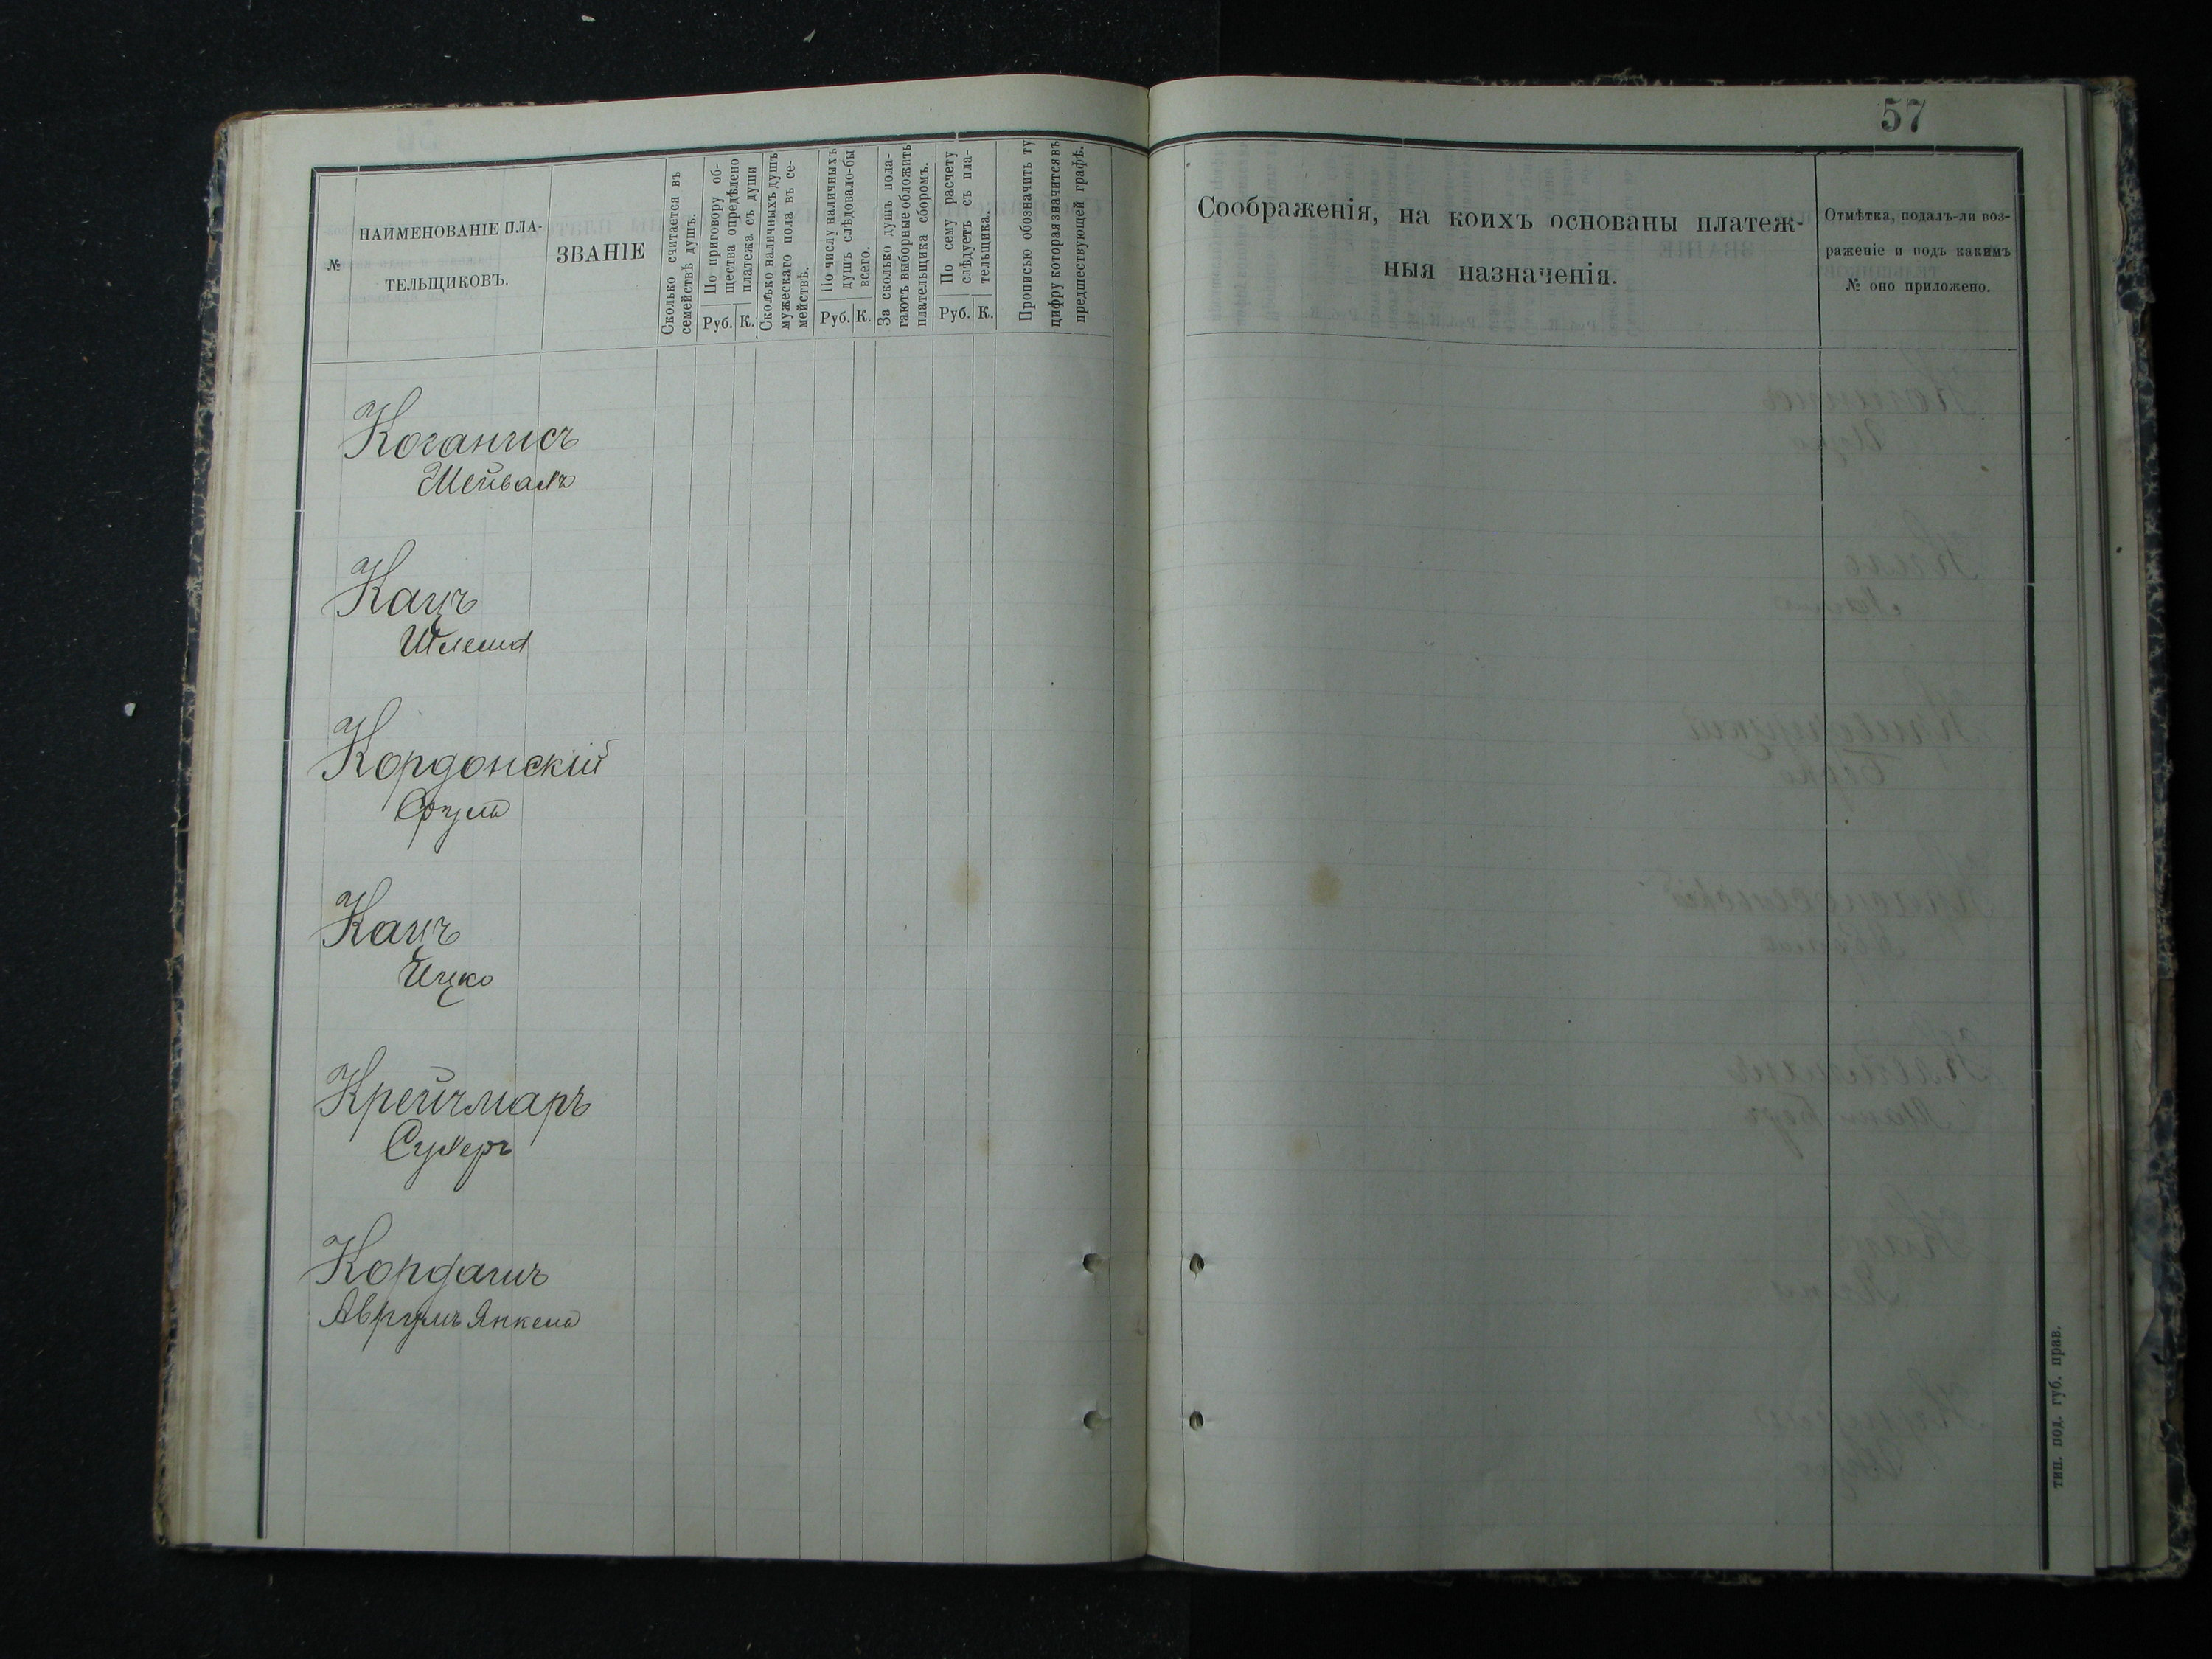 57
№
НАИМЕНОВАНІЕ ПЛА-
ТЕЛЬЩИКОВЪ.
ЗВАНІЕ
Сколько считается въ
семействѣ душъ.
По приговору об-
щества опредѣлено
платежа съ души
Руб. К.
Сколько наличныхъ душъ
мужескаго пола въ се-
мействѣ.
По числу наличныхъ
душъ слѣдовало-бы
всего.
Руб. К.
За сколько душъ пола-
гаютъ выборные обложить
плательщика сборомъ.
По сему расчету
слѣдуетъ съ пла-
тельщика.
Руб. К.
Прописью обозначить ту
цифру которая значится въ
предшествующей графѣ.
Соображенія, на коихъ основаны платеж-
ныя назначенія.
Отмѣтка, подалъ-ли воз-
раженіе и подъ какимъ
№ оно приложено.
Коганисъ
Кацъ
Шлема
Кордонскій
Сруль
Кацъ
Ицко
Крейчмаръ
Сухеръ
Аврумъ Янкель
тип. под. губ. прав.